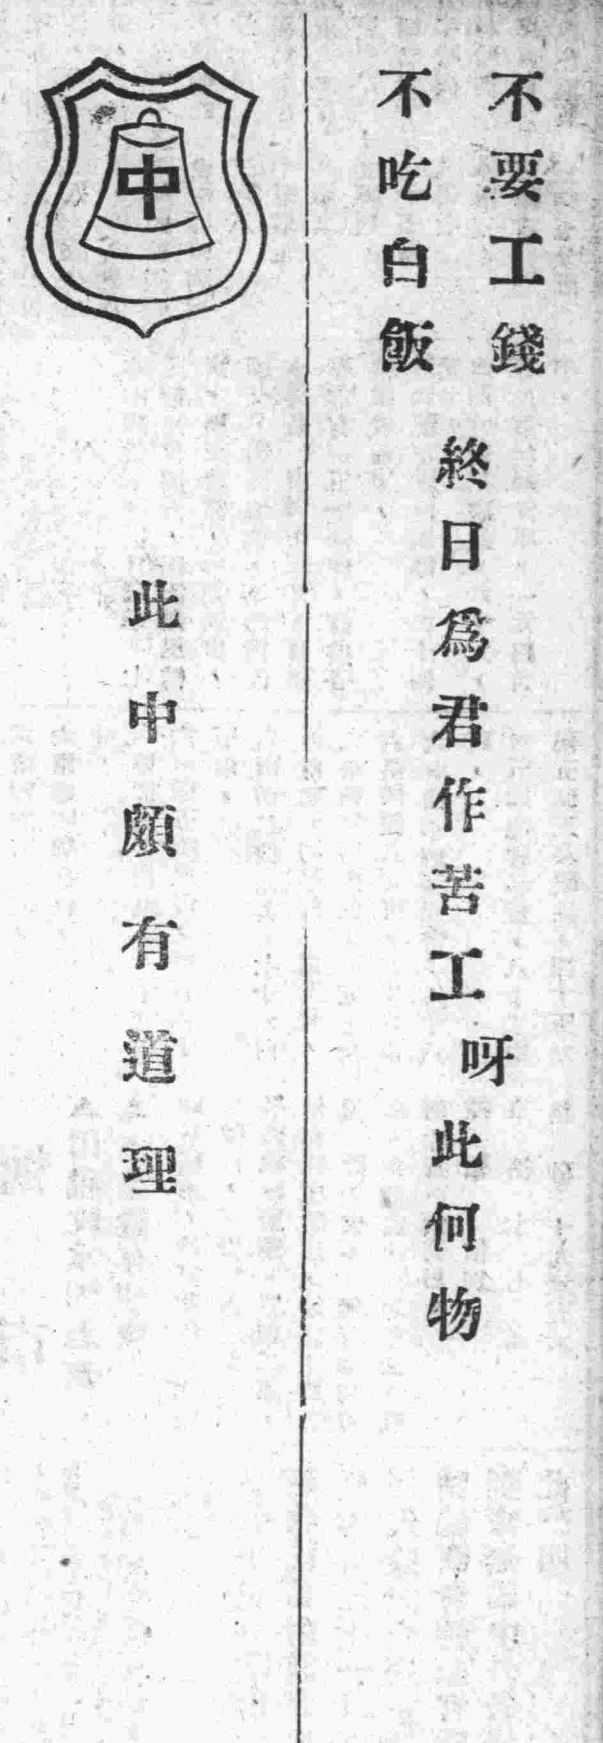 不要工錢
不吃白飯
終日爲君作苦工呀此何物
中
此中頗有道理